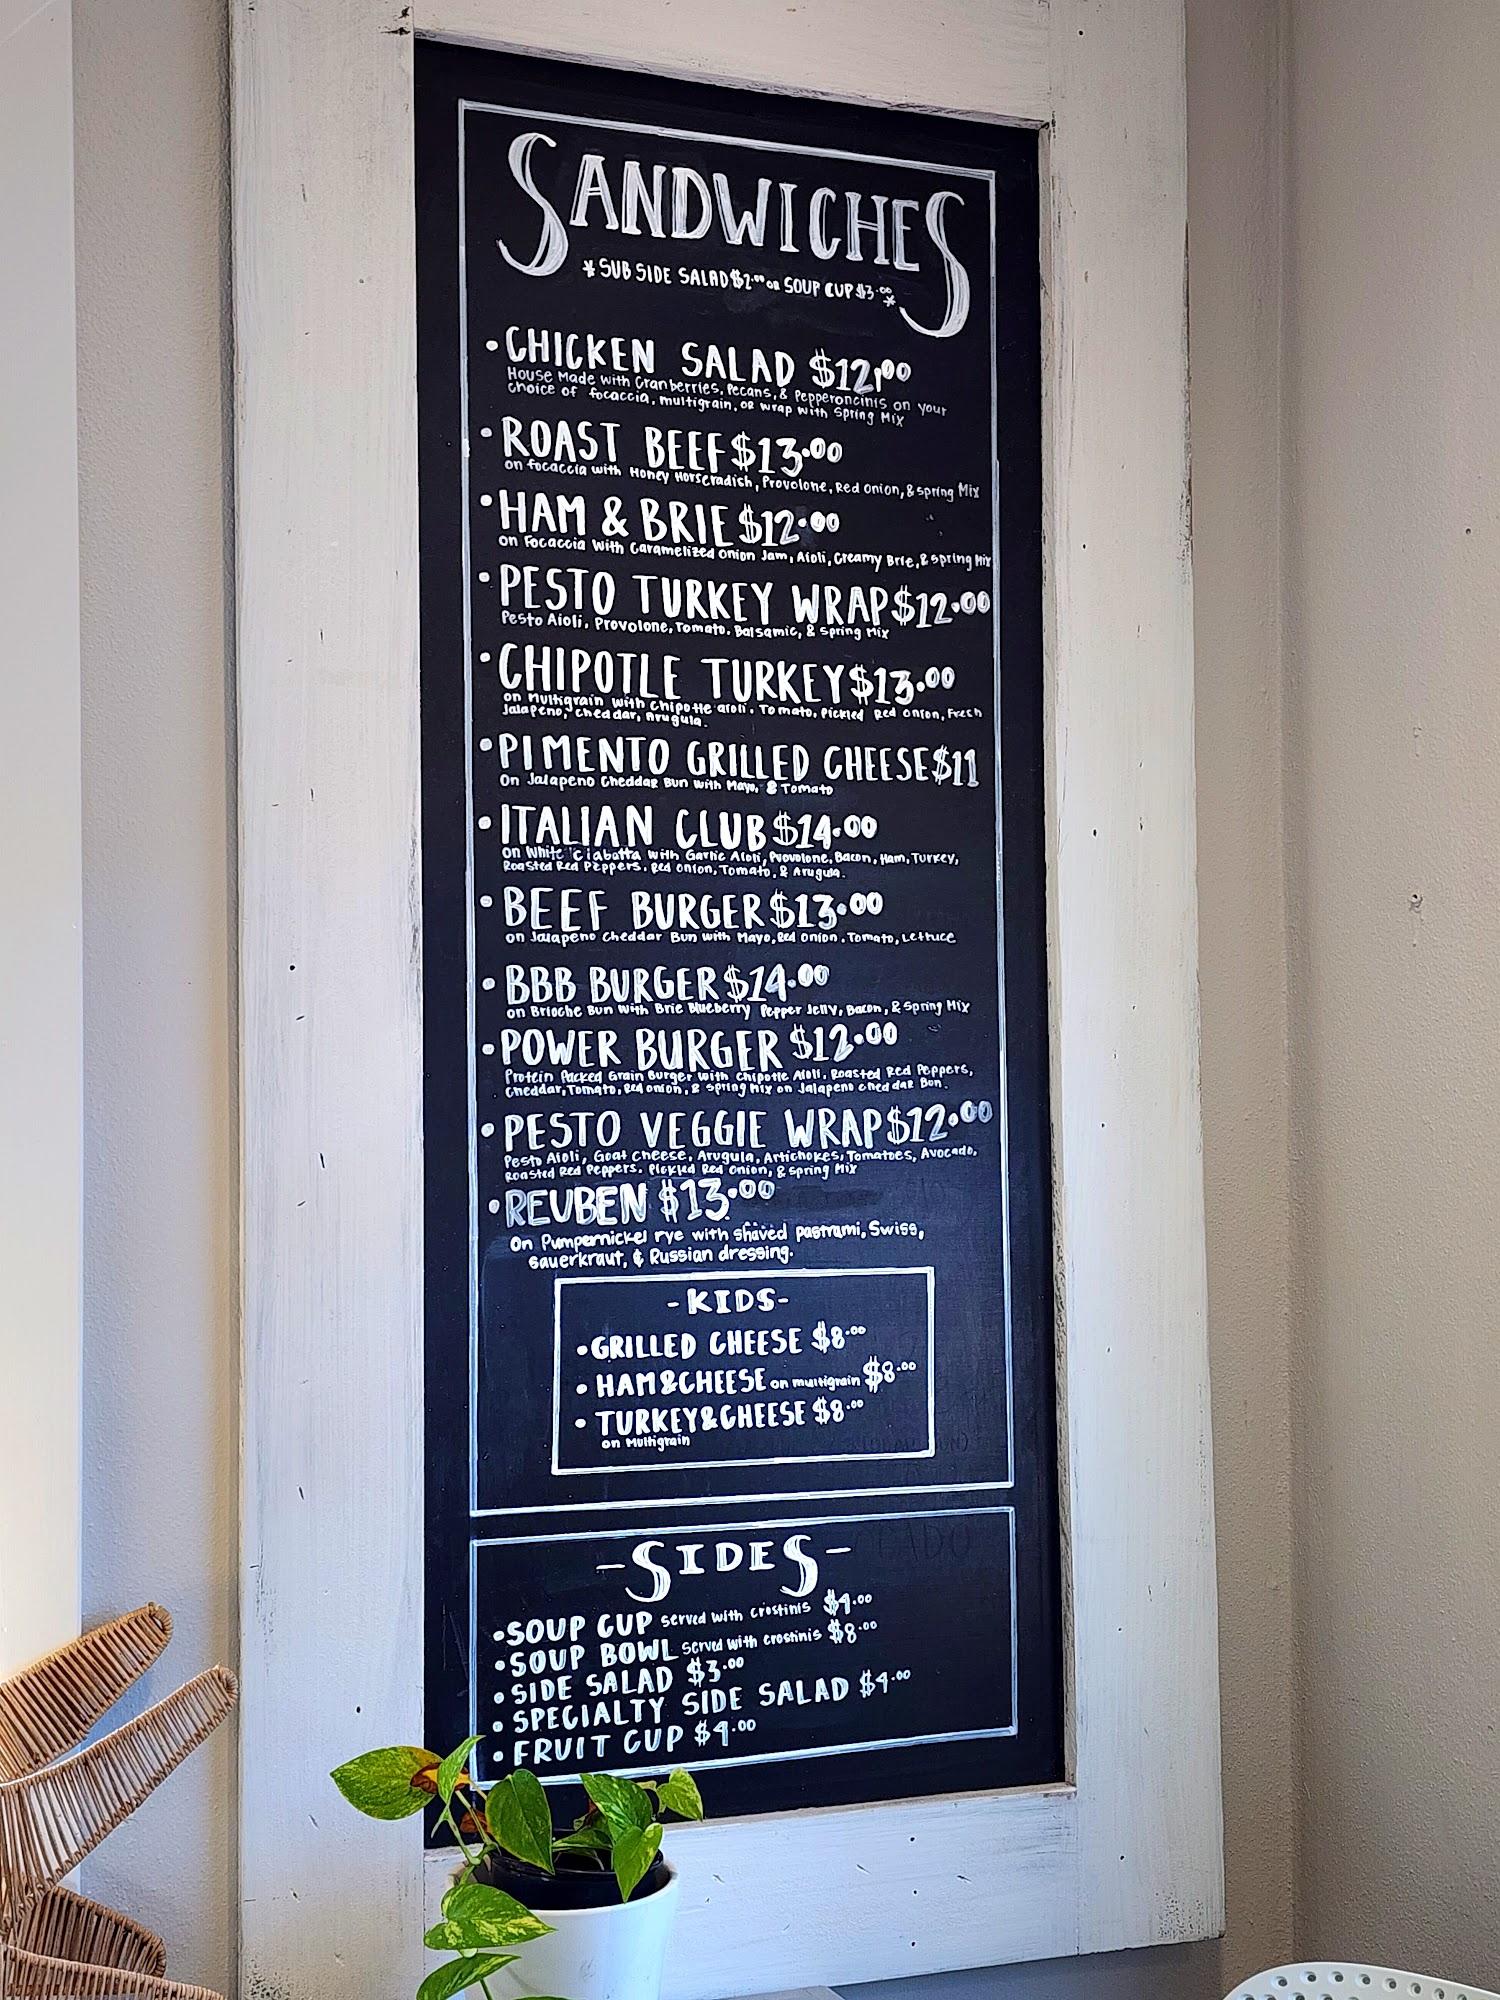 SANDWICHES
*SUB SIDE SALAD $2.00 OR SOUP CUP $3.00*
• CHICKEN SALAD $12.00
House Made with Cranberries, Pecans, & Pepperoncinis on your
choice of focaccia, multigrain, or wrap with Spring Mix
• ROAST BEEF $13.00
on focaccia with Honey Horseradish, Provolone, Red Onion, & Spring Mix
• HAM & BRIE $12.00
on Focaccia With Caramelized Onion Jam, Aioli, Creamy Brie, & Spring Mix
• PESTO TURKEY WRAP $12.00
Pesto Aioli, Provolone, Tomato, Balsamic, & Spring Mix
• CHIPOTLE TURKEY $13.00
on Multigrain with Chipotle aioli, Tomato, Pickled Red Onion, Fresh
Jalapeno, Cheddar, Arugula.
• PIMENTO GRILLED CHEESE $11
On Jalapeno Cheddar Bun with Mayo, & Tomato
• ITALIAN CLUB $14.00
on White Ciabatta with Garlic Aioli, Provolone, Bacon, Ham, Turkey,
Roasted Red Peppers, Red Onion, Tomato, & Arugula.
• BEEF BURGER $13.00
on Jalapeno Cheddar Bun with Mayo, Red Onion, Tomato, Lettuce
• BBB BURGER $14.00
on Brioche Bun With Brie Blueberry Pepper Jelly, Bacon, & Spring Mix
• POWER BURGER $12.00
Protein Packed Grain Burger with Chipotle Aioli, Roasted Red Peppers,
Cheddar, Tomato, Red onion, & Spring Mix on Jalapeno Cheddar Bun.
• PESTO VEGGIE WRAP $12.00
Pesto Aioli, Goat Cheese, Arugula, Artichokes, Tomatoes, Avocado,
Roasted Red Peppers, Pickled Red Onion, & Spring Mix
• REUBEN $13.00
On Pumpernickel rye with shaved pastrami, Swiss,
Sauerkraut, & Russian dressing.
-KIDS-
• GRILLED CHEESE $8.00
• HAM & CHEESE on multigrain $8.00
• TURKEY & CHEESE $8.00
on Multigrain
-SIDES-
• SOUP CUP served with crostinis $4.00
• SOUP BOWL served with crostinis $8.00
• SIDE SALAD $3.00
• SPECIALTY SIDE SALAD $4.00
• FRUIT CUP $4.00